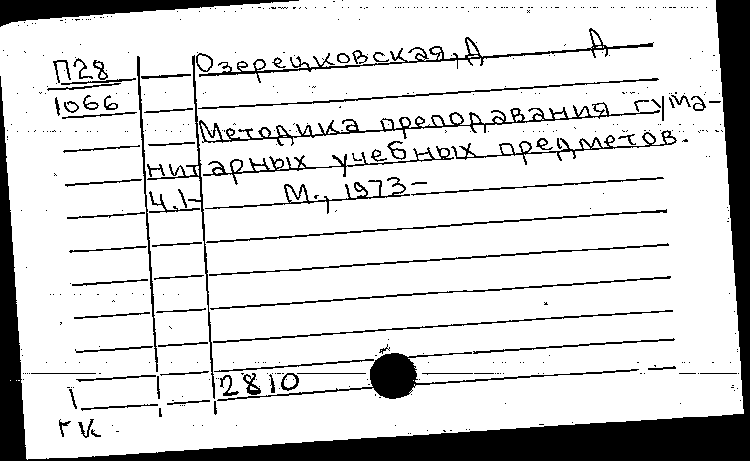 П28 Озерецковская, Д Д
1066
Методика преподавания гума-
нитарных учебных предметов.
Ч.1- М., 1973-
2810
1
ГК